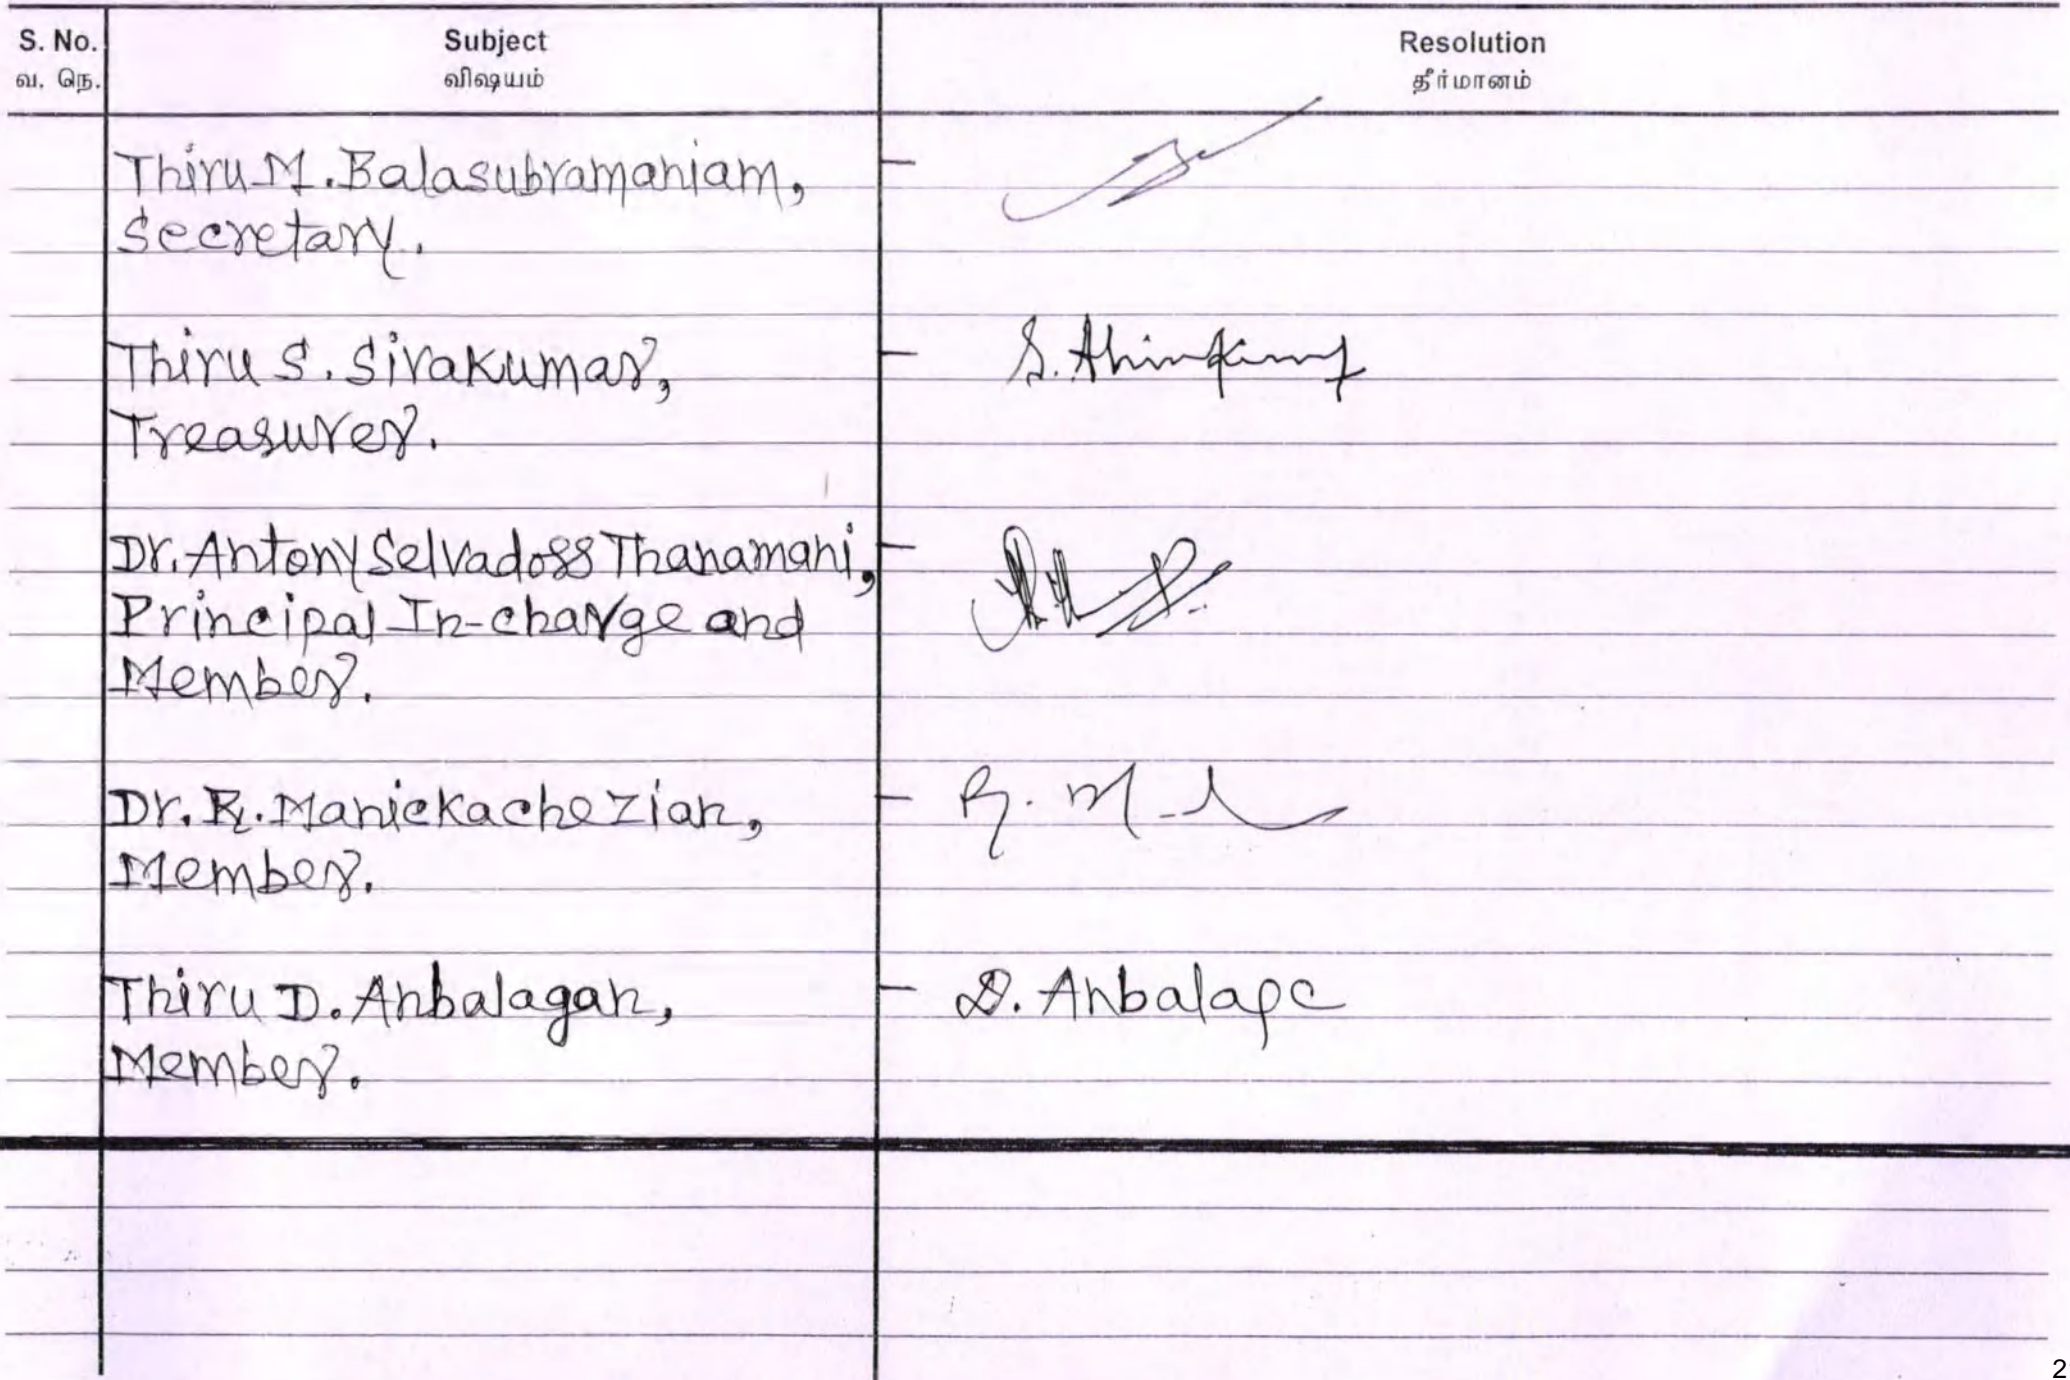 S. No. Subject Resolution
வ. நெ. விஷயம் தீர்மானம்
Thiru M. Balasubramaniam, -
Secretary.
Thiru S. Sivakumar, - S.
Treasurer.
Dr. Antony Selvadoss Thanamani, -
Principal In-charge and
Member.
Dr. R. Manickachezian, - R. M
Member.
Thiru D. Anbalagan, - D. Anbalaga
Member.
2